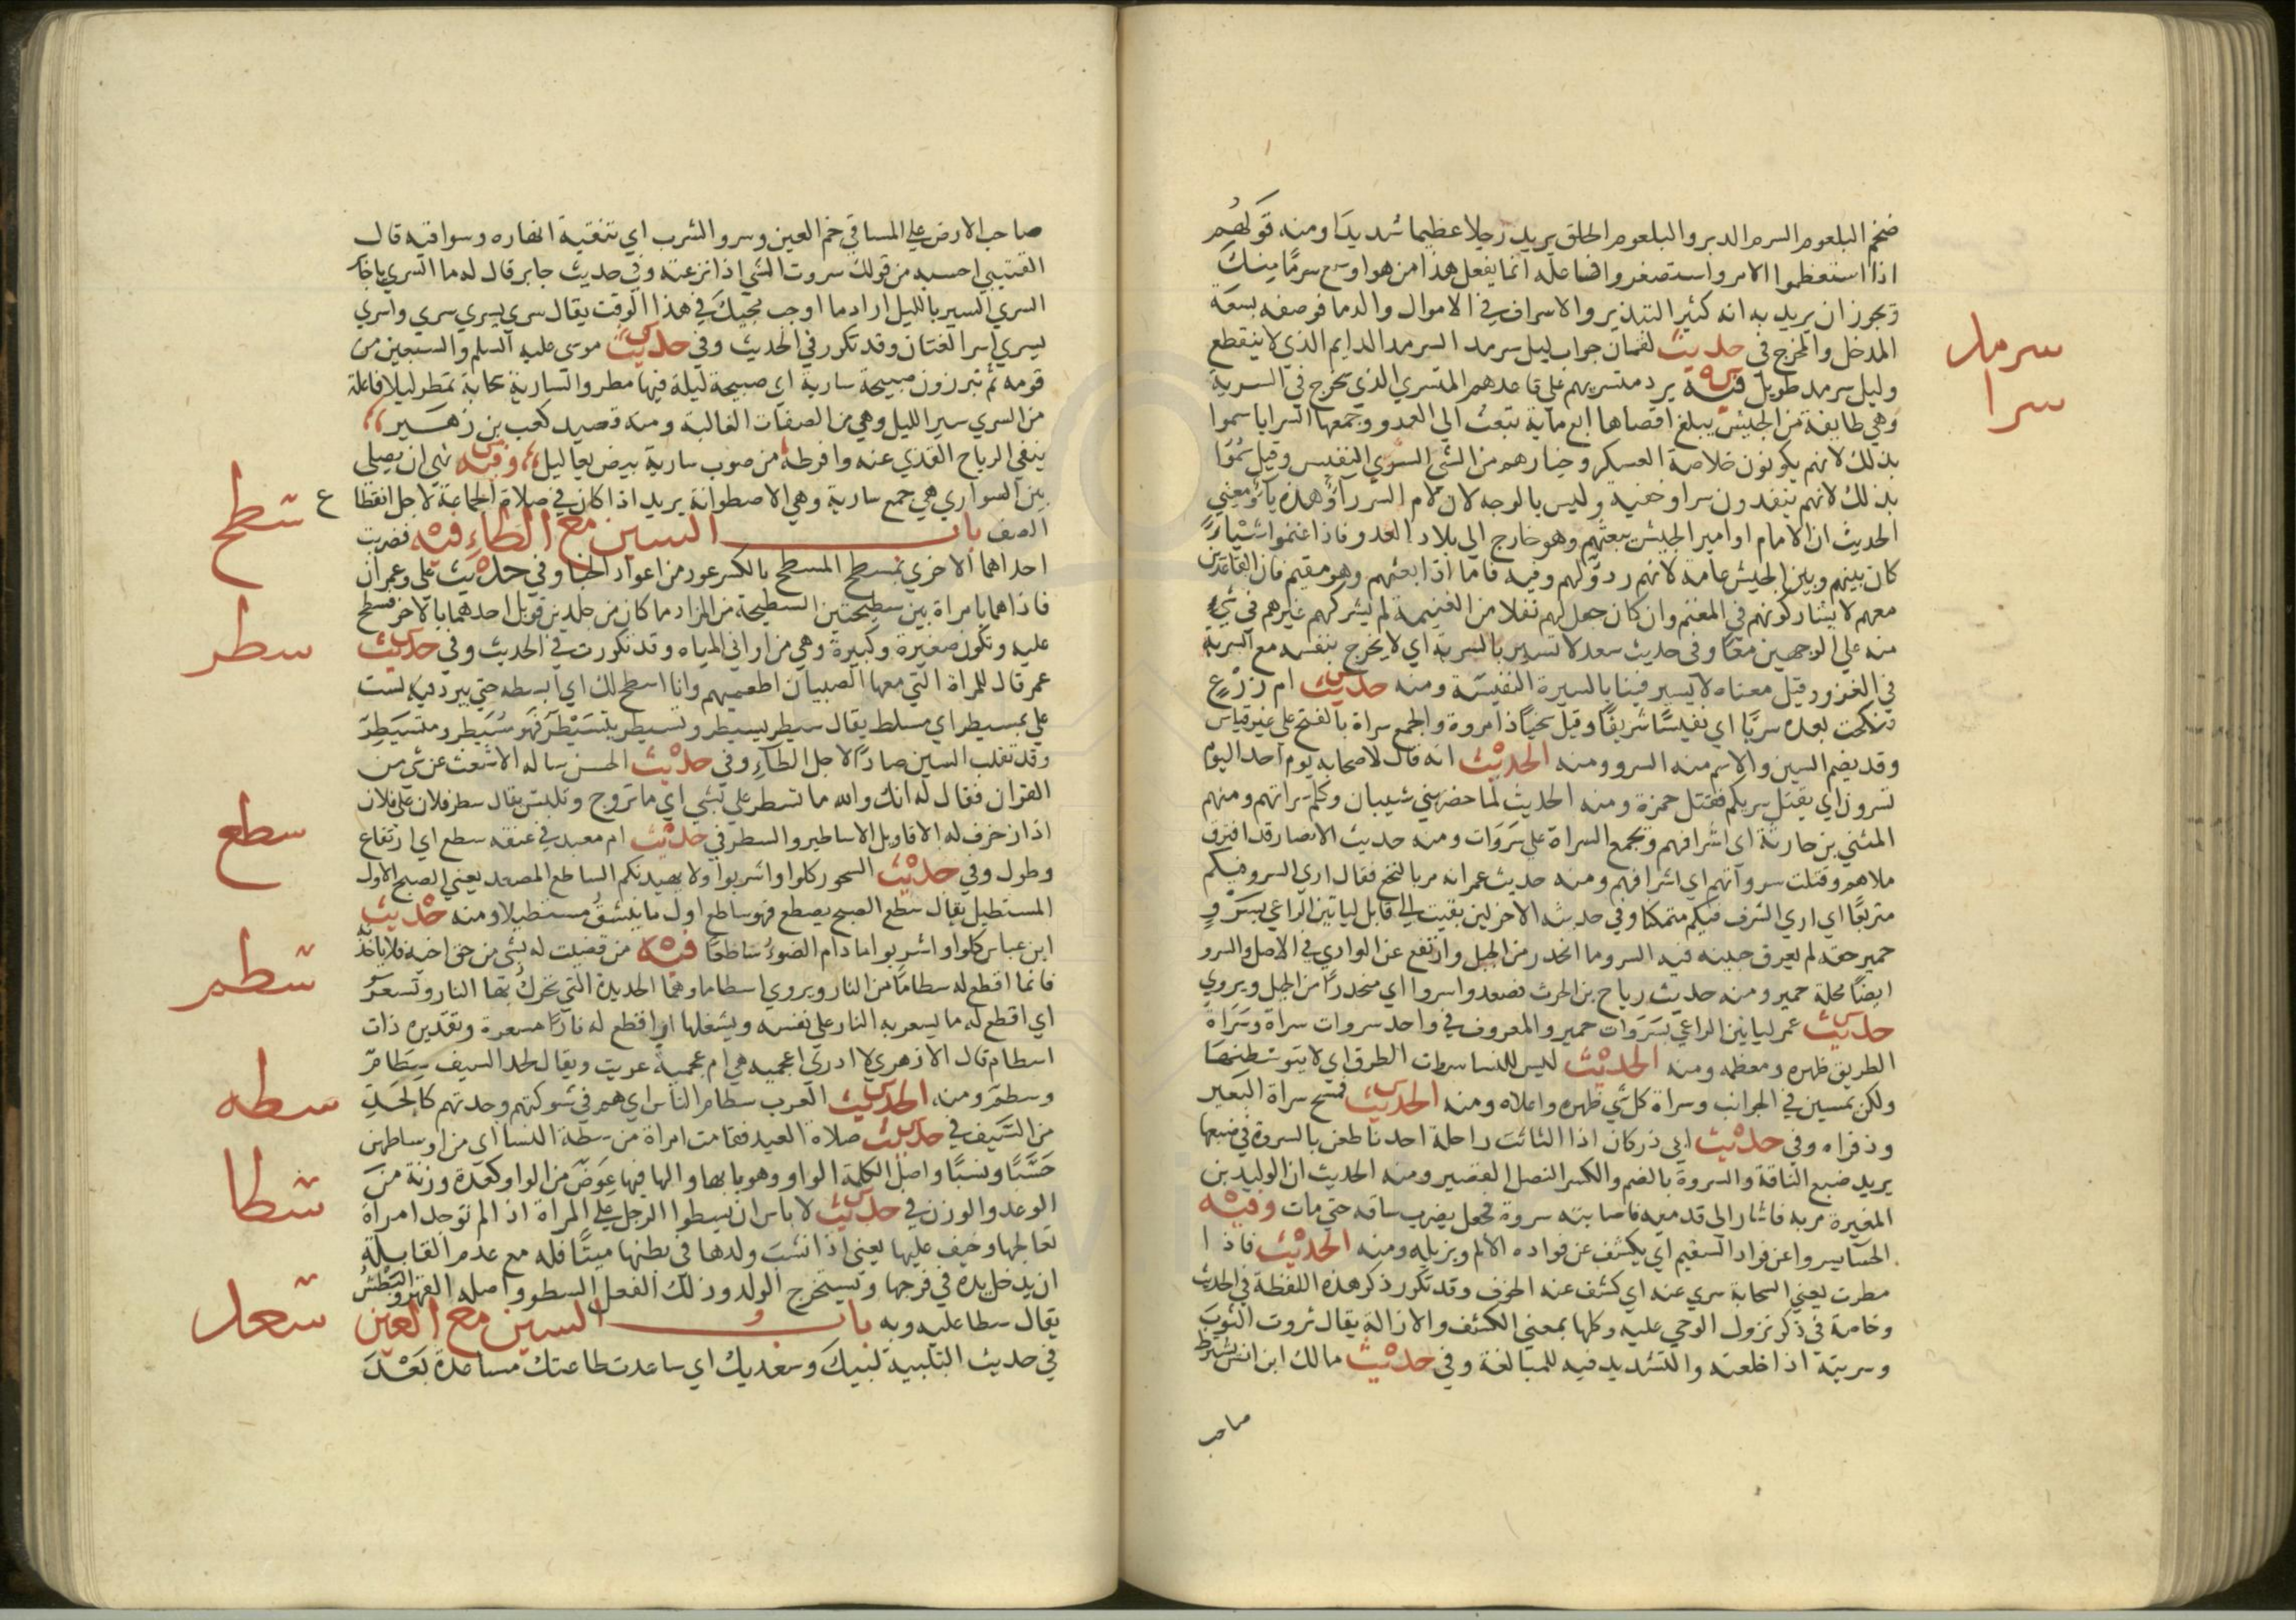 ضخم البلعوم السرم الدبر والبلعوم الحلق يريد رجلا عظيما شديدا ومنه قولهم
اذا استعظموا الامر واستصغروا فاعله انما يفعل هذا من هو اوسع سرمًا مِنكَ
ويجوز ان يريد به انه كثير التبذير والاسراف في الاموال والدما فوصفه بسعة
المدخل والمخرج في حديث لقمان جواب ليل سرمد السرمد الدايم الذي لا ينقطع
سرمد
وليل سرمد طويل فيه يرد متسريهم على قاعدهم المتسري الذي يخرج في السرية
سرا
وهي طايفة من الجيش يبلغ اقصاها اربع ماية تبعث الي العدو وجمعها السرايا سموا
بذلك لانهم يكونون خلاصة العسكر وخيارهم من الشي السري النفيس وقيل سُمّوا
بذلك لانهم ينفدون سرا وخفية وليس بالوجه لان لام السر راؤ وهذه ياؤ ومعني
الحديث ان الامام او امير الجيش يبعثهم وهو خارج الي بلاد العدو فاذا غنموا شَيْاً
كان بينهم وبين الجيش عامة لانهم ردؤ لهم وفيه فاما اذا بعثهم وهو مقيم فان القاعدين
معهم لا يشاركونهم في المغنم وان كان جعل لهم نفلا من الغنيمة لم يشركهم غيرهم في شيء
منه علي الوجهين معًا وفي حديث سعد لا تسير بالسرية اي لا يخرج بنفسه مع السرية
في الغزو وقيل معناه لا يسير فينا بالسيرة النفيسة ومنه حديث ام زَرْعٍ
فنكحت بعده سريًّا اي نفيسًا شريفًا وقيل سخيًا ذا مروة والجمع سراة بالفتح على غير قياس
وقد يضم السين والاسم منه السرو ومنه الحديث انه قال لاصحابه يوم احد اليوم
تسرون اي يقتل سريكم فقتل حمزة ومنه الحديث لما حضر بني شيبان وكلم سراتهم ومنهم
المثني بن حارثة اي اشرافهم ويجمع السراة علي سَرَوَات ومنه حديث الانصار قد افترق
ملاهم وقتلت سرواتهم اي اشرافهم ومنه حديث عمر انه مر بالنخع فقال اري السرو فيكم
متربعًا اي اري الشرف فيكم متمكنا وفي حديثه الاخر لئن بقيت الى قابل لياتين الراعي بِسَرْوِ
حمير حقه لم يعرق جبينه فيه السرو ما انحدر من الجبل وارتفع عن الوادي في الاصل والسرو
ايضًا محلة حمير ومنه حديث رياح بن الحرث فصعدوا سروا اي منحدرًا من الجبل ويروي
حديث عمر لياتين الراعي بسَرَوَات حمير والمعروف في واحد سروات سراة وسَرَاة
الطريق ظهره ومعظمه ومنه الحديث ليس للنسا سروات الطرق اي لا يتوسَّطنها
ولكن يمسين في الجوانب وسراة كل شي ظهره واعلاه ومنه الحديث فمسح سراة البَعير
وذفراه وفي حديث ابي ذر كان اذا التاثَتْ راحلة احدنا طعن بالسروة في ضبعها
يريد ضبع الناقة والسروة بالضم والكسر النصل القصير ومنه الحديث ان الوليد بن
المغيرة مر به فاشار الى قدميه فاصابته سروة فجعل يضرب ساقه حتي مات وفيه
الحسا يسروا عن فواد السقيم اي يكشف عن فواده الالم ويزيله ومنه الحديث فاذا
مطرت يعني السحابة سري عنه اي كشف عنه الخوف وقد تكرر ذكر هذه اللفظة في الحديث
وخاصة في ذكر نزول الوحي عليه وكلها بمعني الكشف والازالة يقال سروت الثوب
وسريته اذا خلعته والتشديد فيه للمبالغة وفي حديث مالك ابن انس يشترط
صاحب
صاحب الارض على المساقي خم العين وسرو الشرب اي تنقية انهاره وسواقيه قال
القتيبي احسبه من قولك سروت الشي اذا نزعته وفي حديث جابر قال له ما السري يا جابر
السري السير بالليل اراد ما اوجب مجيك في هذا الوقت يقال سري يسري سري واسري
يسري اسرا لغتان وقد تكرر في الحديث وفي حديث موسي عليه السلم والسبعين من
قومه ثم تبرزون صبيحة سارية اي صبيحة ليلة فيها مطر والسارية سحابة تمطر ليلا فاعلة
من السري سير الليل وهي من الصفات الغالبة ومنه قصيد كعب بن زهَـير
ينفي الرياح القذي عنه وافرطه من صوب سارية بيض يعاليل وفيه نهي ان يصلي
بين السواري هي جمع سارية وهي الاصطوانة يريد اذا كان في صلاة الجماعة لاجل انقطاع
الصف باب السين مع الطاءِ فيه فضربت
سطح
احداهما الاخري بمسطح المسطح بالكسر عود من اعواد الخبا وفي حديث علي وعمران
فاذا هما بامراة بين سطيحتين السطيحة من المزاد ما كان من جلدين قوبل احدهما بالاخر فسطح
عليه وتكون صغيرة وكبيرة وهي من اواني المياه وقد تكررت في الحديث وفي حديث
سطر
عمر قال للمراة التي معها الصبيان اطعميهم وانا اسطح لك اي ابسطه حتي يبرد فيه لست
علي بمسيطر اي مسلط يقال سيطر يسيطر وتسيطر يتسَيْطَر فهو مُسَيطِر ومتسَيطِر
وقد تقلب السين صادًا لاجل الطاءِ وفي حديث الحسن ساله الاشعث عن شي من
القران فقال له انك والله ما تسطر علي بشي اي ما تروج وتلبس يقال سطر فلان علي فلان
اذا زخرف له الاقاويل الاساطير والسطر في حديث ام معبد في عنقه سطع اي ارتفاع
سطع
وطول وفي حديث السحور كلوا واشربوا ولا يهيدنكم الساطع المصعد يعني الصبح الاول
المستطيل يقال سطع الصبح يسطع فهو ساطع اول ما ينشقُّ مستطيلا ومنه حديث
ابن عباس كلوا واشربوا ما دام الضوءُ ساطعًا فيه من قضيت له بشي من حق اخيه فلا ياخذه
سطم
فانما اقطع له سطامًا من النار ويروي اسطاما وهما الحديدة التي تحركُ بها النار وتسعَّرُ
اي اقطع له ما يسعر به النار على نفسه ويشعلها او اقطع له نارًا مسعرة وتقديره ذات
اسطام قال الازهري لا ادري اعجميه هي ام عجمية عربت ويقال لحد السيف سِطَامٌ
وسطمٌ ومنه الحديث العرب سطام الناس اي هم في شوكتهم وحدتهم كالحَدِّ
سطه
من السَّيف في حديث صلاة العيد فقامت امراة من سطة النسا اي من اوساطهن
حَسَبًا ونسبًا واصل الكلمة الواو وهو بابها والها فيها عِوَضٌ من الواو كعدة وزنة منَ
سطا
الوعد والوزن في حديث لا باس ان يسطوا الرجل علي المراة اذا لم توجد امراة
تعالجها وخيف عليها يعني اذا نشب ولدها في بطنها ميتًا فله مع عدم القابلة
ان يدخل يده في فرجها ويستخرج الولد وذلك الفعل السطو واصله القهر والبَطْشُ
يقال سطا عليه وبه باب السين مع العين
سعد
في حديث التلبية لبيكَ وسعديك اي ساعدت طاعتك مساعدة بَعْدَ